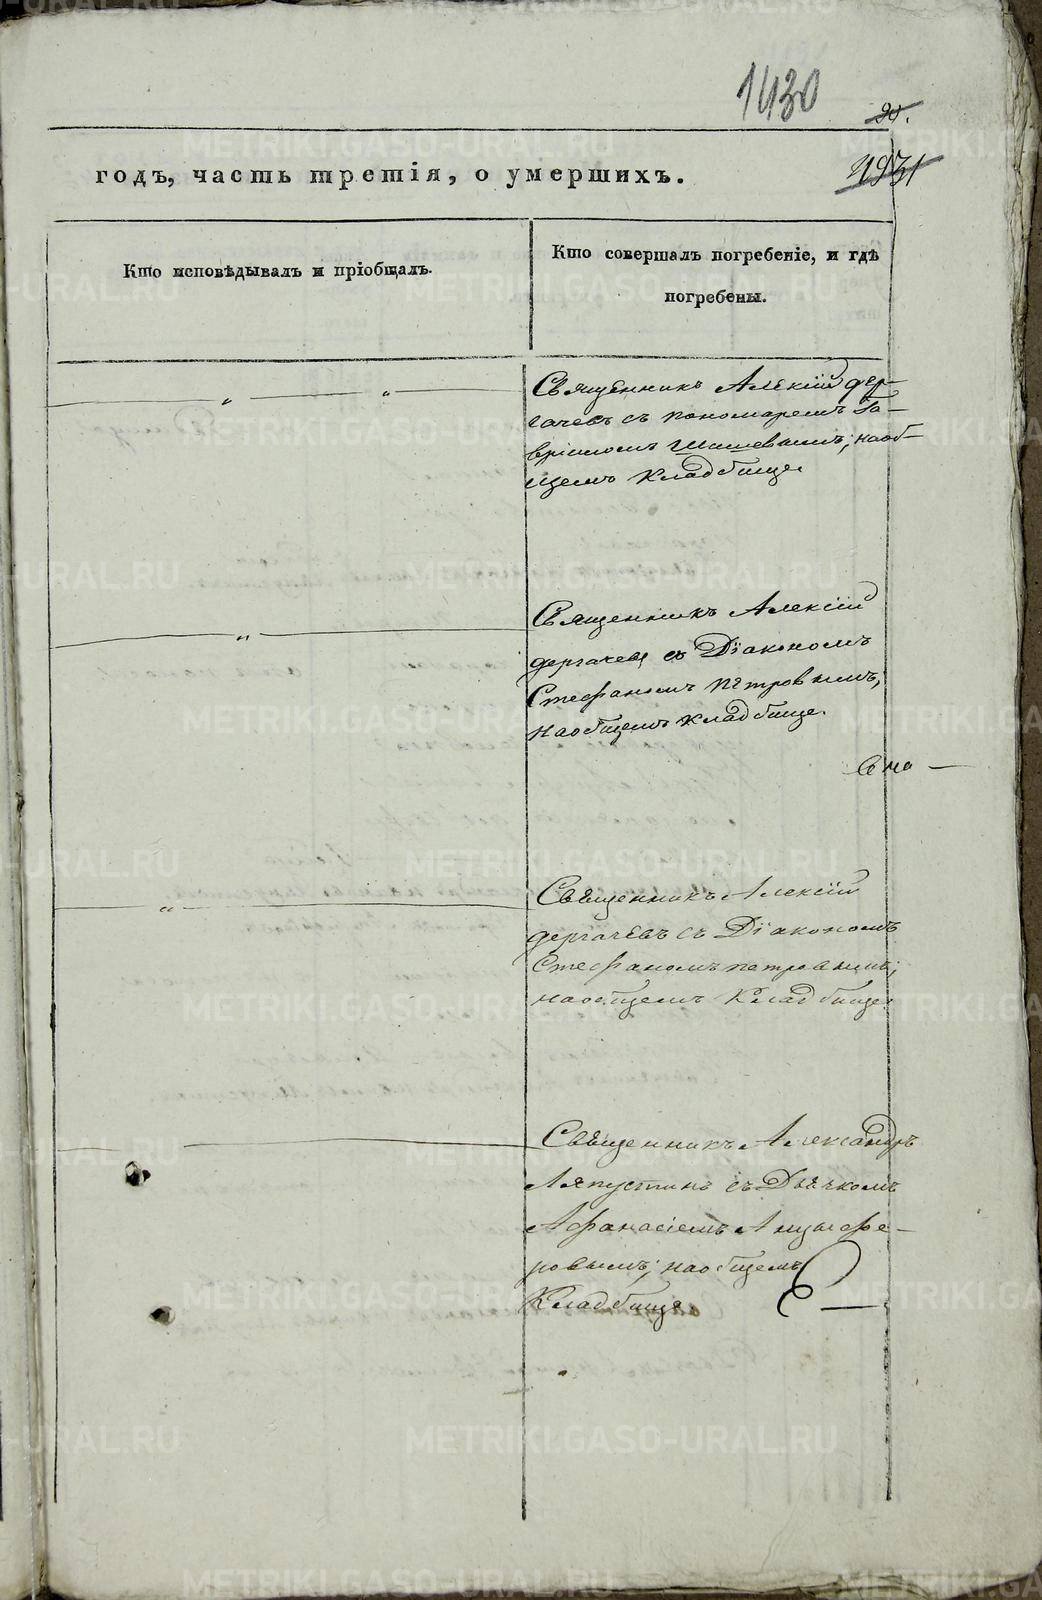 1430
20.
1931
годъ, часть третія, о умершихъ.
Кто исповѣдывалъ и пріобщалъ.
Кто совершалъ погребеніе, и гдѣ
погребены.
Священникъ Алексій Дер-
гачевъ съ пономаремъ Га-
вріиломъ Шишевымъ; на об-
щемъ Кладбище.
Священникъ Алексій
Дергачевъ съ Діакономъ
Стефаномъ Петровымъ;
на общемъ Кладбище.
Священникъ Алексій
Дергачевъ съ Діакономъ
Стефаномъ Петровымъ;
на общемъ Кладбище.
Священникъ Александръ
Ляпустинъ съ Дьячкомъ
Афанасіемъ Анцыфе-
ровымъ; на общемъ
Кладбище
METRIKI.GASO-URAL.RU